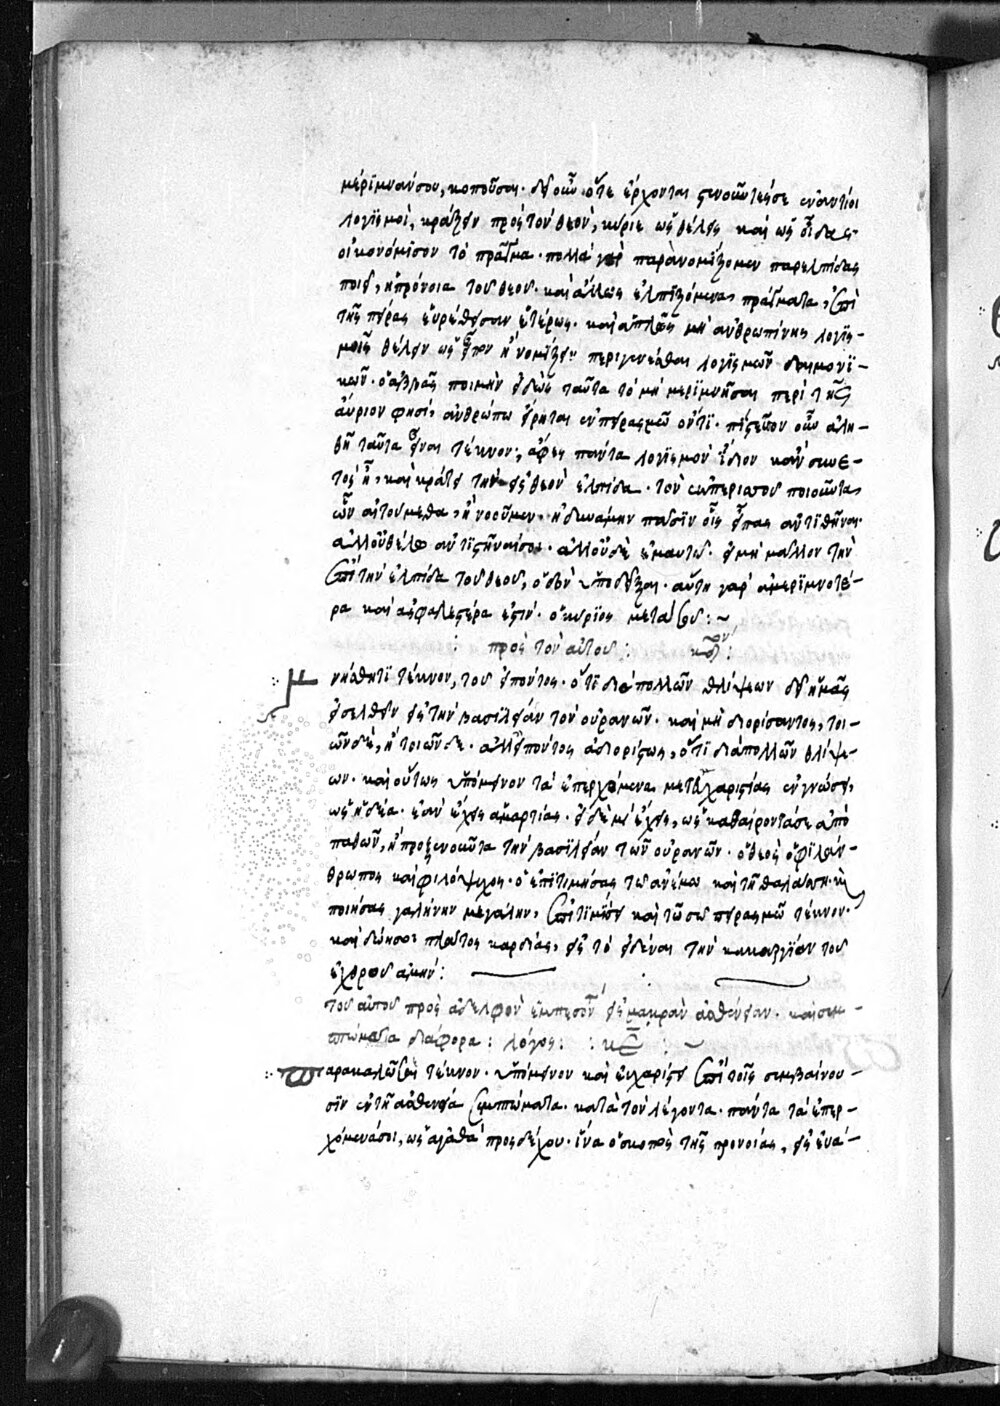 μέριμνάν σου, κοποῦσαι. δι' οὖν ὅτε ἔρχονται
λογισμοὶ, κράξειν πρὸς τὸν θεὸν, κύριε ὡς θέλεις καὶ ὡς οἶδας
οἰκονόμισον τὸ πρᾶγμα. πολλὰ γὰρ παρὰ νομίζομεν παρελπίδας
ποιεῖ, ἡ πρόνοια τοῦ θεοῦ. καὶ ἄλλως ἐλπιζόμενα πράγματα, ἐπὶ
τῆς πείρας εὑρέθησαν ἑτέρως. καὶ ἁπλῶς μὴ ἀνθρωπίνης λογισ-
μοῖς θέλειν ὡς εἶπον ἢ νομίζειν περιγενέσθαι λογισμῶν δαιμονι-
κῶν. ὁ ἀββᾶς ποιμὴν εἰδὼς ταῦτα τὸ μὴ μεριμνῆσαι περὶ τῆς
αὔριον φησὶ, ἀνθρώπω εἴρηται ἐν πειρασμῶ ὄντι. πίστευσον οὖν ἀλη-
θῆ ταῦτα εἶναι τέκνον, ἄφες πάντα λογισμὸν ἴδιον κἂν συνε-
τὸς ἦ, καὶ κράτει τὴν εἰς θεὸν ἐλπίδα. τὸν ἐκ περισσοῦ ποιοῦντα,
ὧν αἰτούμεθα, ἢ νοοῦμεν. ἠδυνάμην πᾶσιν οἷς εἶπας ἀντιθῆναι.
ἀλλ' οὐ θέλω ἀντιστῆναί σοι. ἀλλ' οὐδὲ ἐμαυτῶ. εἰ μὴ μᾶλλον τὴν
ἐπὶ τὴν ἐλπίδα τοῦ θεοῦ, ὁδὸν ὑποδεῖξαι. αὕτη γὰρ ἀμεριμνοτέ-
ρα καὶ ἀσφαλεστέρα ἐστίν. ὁ κύριος μετὰ σοῦ : ~
: πρὸς τὸν αὐτοῦ :
μνήσθητι τέκνον, τοῦ εἰπόντος. ὅτι διὰ πολλῶν θλίψεων δεῖ ἡμᾶς
εἰσελθεῖν εἰς τὴν βασιλείαν τῶν οὐρανῶν. καὶ μὴ διορίσαντος, τοι-
ῶνδε, ἢ τοιῶνδε. ἀλλ' εἰπόντος ἀδιορίστως, ὅτι διὰ πολλῶν θλίψε-
ων. καὶ οὕτως ὑπόμεινον τὰ ἐπερχόμενα μετ' εὐχαριστίας ἐν γνώσει,
ὡς ἡδέα. ἐὰν ἔχης ἁμαρτίας. εἰ δὲ μὴ ἔχεις, ὡς καθαίροντά σε ἀπὸ
παθῶν, ἢ προξενοῦντα τὴν βασιλείαν τῶν οὐρανῶν. ὁ θεὸς ὁ φιλάν-
θρωπος καὶ φιλόψυχος. ὁ ἐπιτιμήσας τῶ ἀνέμω καὶ τῆ θαλάσση. κ(αὶ)
ποιήσας γαλήνην μεγάλην, ἐπιτιμήσει καὶ τῶ σῶ πειρασμῶ τέκνον.
καὶ δώη σοι πλάτος καρδίας, εἰς τὸ εἰδέναι τὴν κακαλγίαν τοῦ
ἐχθροῦ ἀμήν :
τοῦ αὐτοῦ πρὸς ἀδελφὸν ἐμπεσόντ' εἰς μακρὰν ἀσθένειαν. καὶ συμ-
πτώματα διάφορα : λόγος :
παρακαλῶ σε τέκνον. ὑπόμεινον καὶ εὐχαρίστει ἐπὶ τοῖς συμβαίνου-
σιν ἐν τῆ ἀσθενεία συμπτώματα. κατὰ τὸν λέγοντα. πάντα τὰ ἐπερ-
χόμενά σοι, ὡς ἀγαθὰ προσδέχου. ἵνα ὁ σκοπὸς τῆς προνοίας, εἰς εὐα-